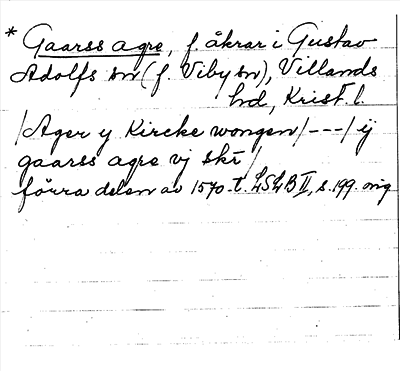 * Gaarss agre, f. åkrar i Gustav
Adolfs sn (f. Viby sn), Villands
hd, Krist. l.
/Ager y Kircke wongen/---/ ij
gaarss agre vj skr/
förra delen av 1570-t. LSLB II, s. 199. orig